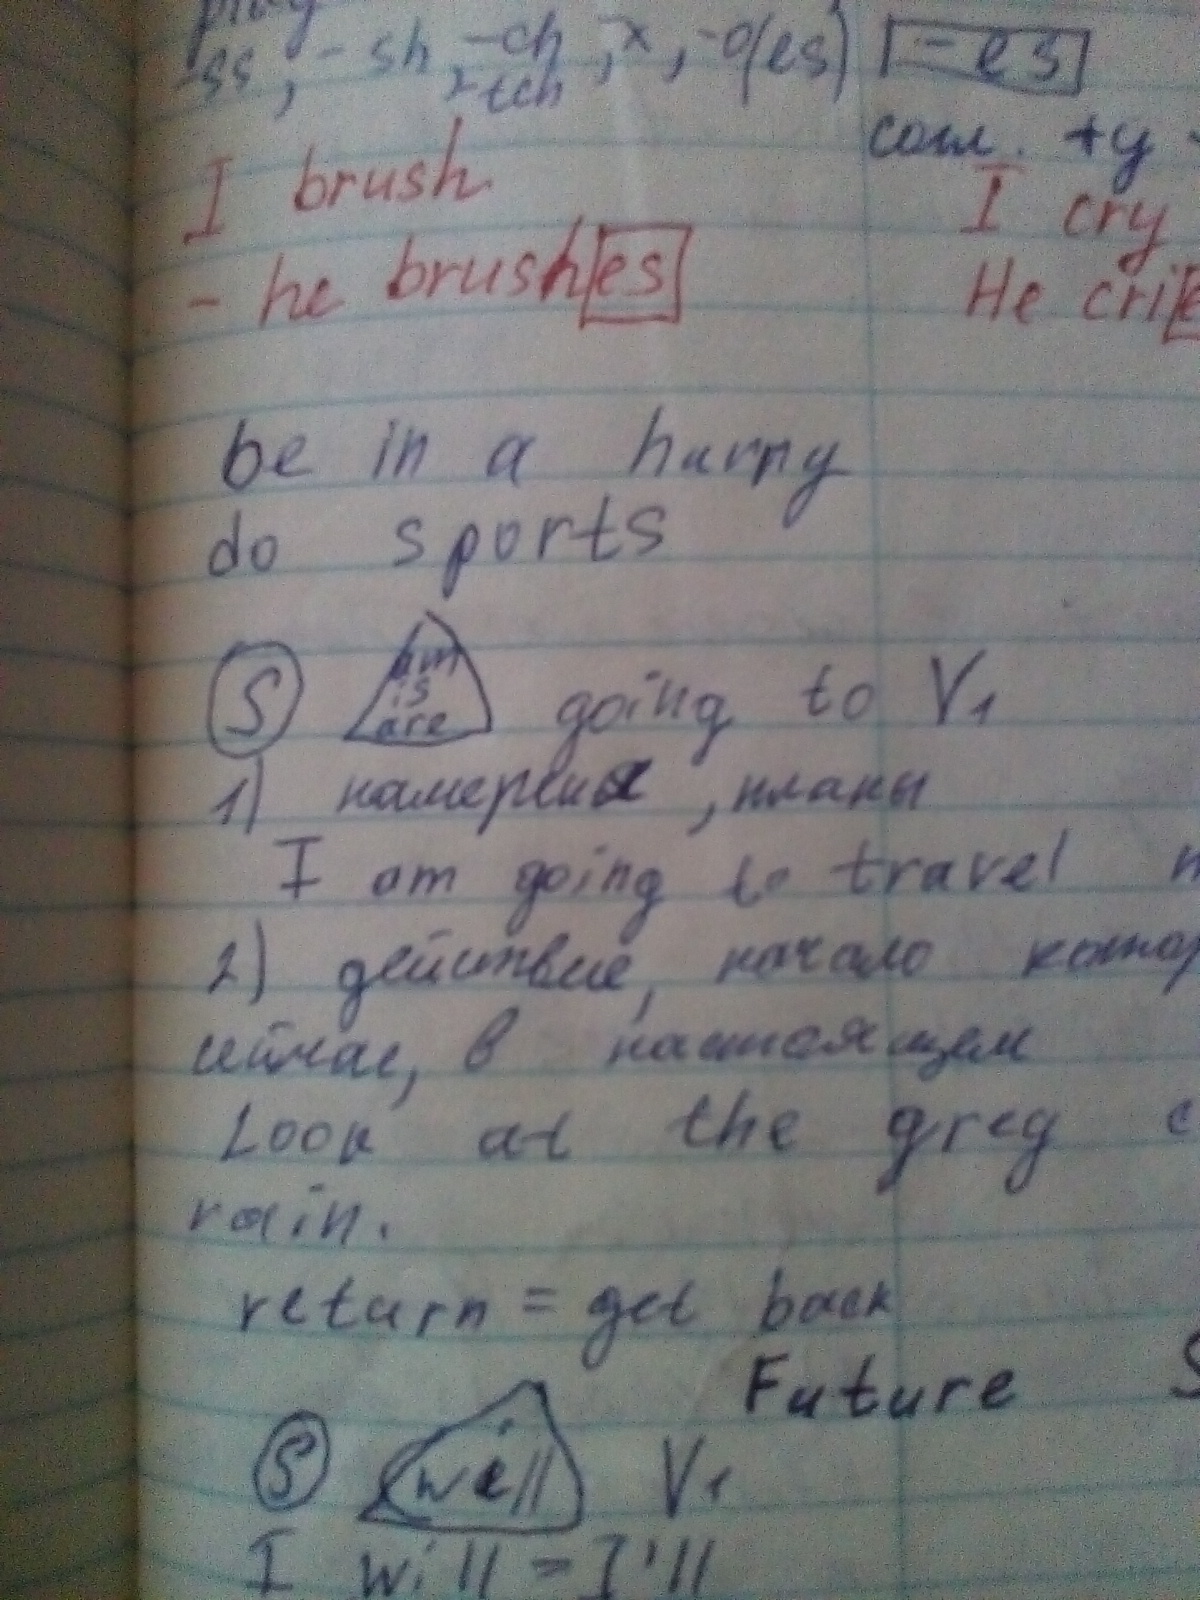 play
-ss, -sh, -ch, x, -o(es) -es
-tch
согл. +y
I brush
I cry
- he brushes
He crie
be in a hurry
do sports
S am is are going to V1
1) намерения, планы
I am going to travel
2) действие, начало
сейчас, в настоящем
Look at the grey
rain.
return = get back
Future S
S will V1
I will = I'll